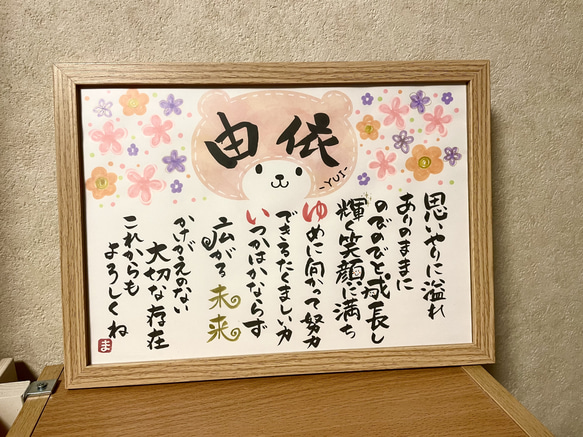 由依
-YUI-
思いやりに溢れ
ありのままに
のびのびと成長し
輝く笑顔に満ち
ゆめに向かって努力
できるたくましい力
いつかはかならず
広がる未来
かけがえのない
大切な存在
これからも
よろしくね
ま